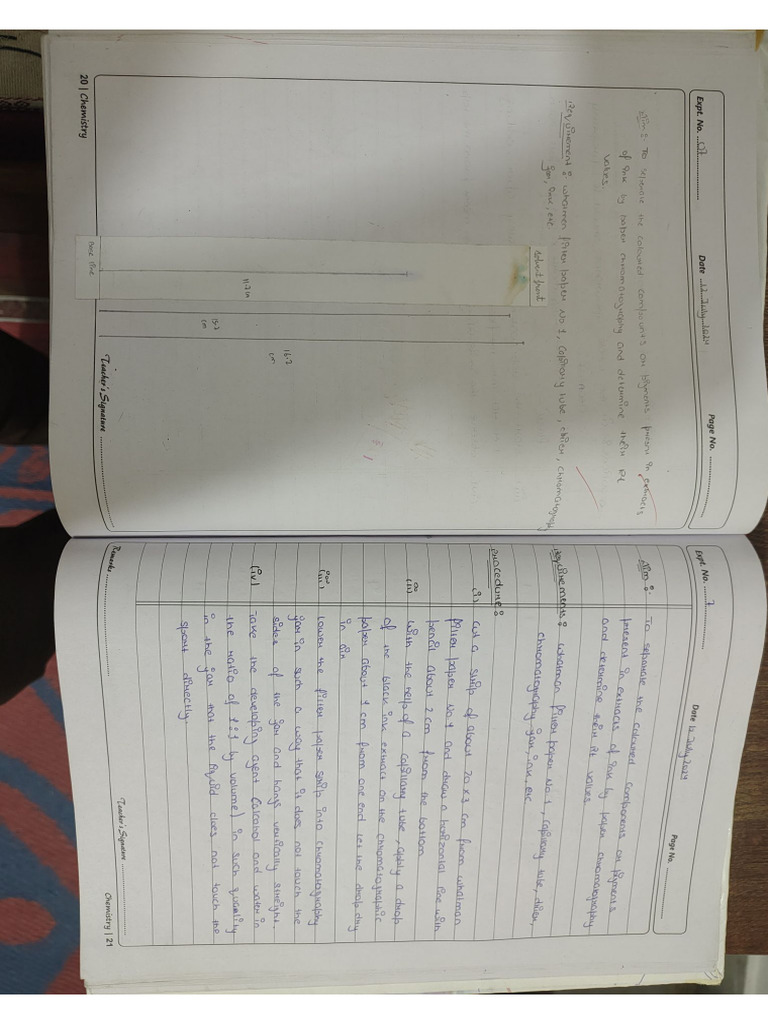 Expt. No. 07
Date 12 July 2024
Page No.
Aim: To separate the coloured compounds on pigments present in extracts
of ink by paper chromatography and determine their Rf
values.
Requirement: whatmen filter paper No 1, Capillary tube, , chromatography
jar, ink, etc
Solvent front
Base line
11.2 cm
15.7
cm
16.2
cm
Teacher's Signature
20 | Chemistry
Expt. No. 7
Date 12 July 2024
Page No.
Aim: To separate the coloured components on pigments
present in extracts of ink by paper chromatography
and determine their Rf values
Requirement: whatman filter paper No 1, capillary tube,
chromatography jar, ink, etc.
Procedure:
(i) cut a strip of about 20 x 3 cm from whatman
filter paper No 1 and draw a horizontal line with
pencil about 2 cm from the bottom
(ii) with the help of a capillary tube, apply a drop
of the black ink extract on the chromatographic
paper about 1 cm from one end let the drop dry
in air
(iii) Lower the filter paper strip into chromatography
jar in such a way that it does not touch the
sides of the jar and hangs vertically straight.
(iv) Take the developing agent (alcohol and water in
the ratio of 1:1 by volume) in such quantity
in the jar that the liquid does not touch the
spout directly.
Remarks
Teacher's Signature
Chemistry | 21